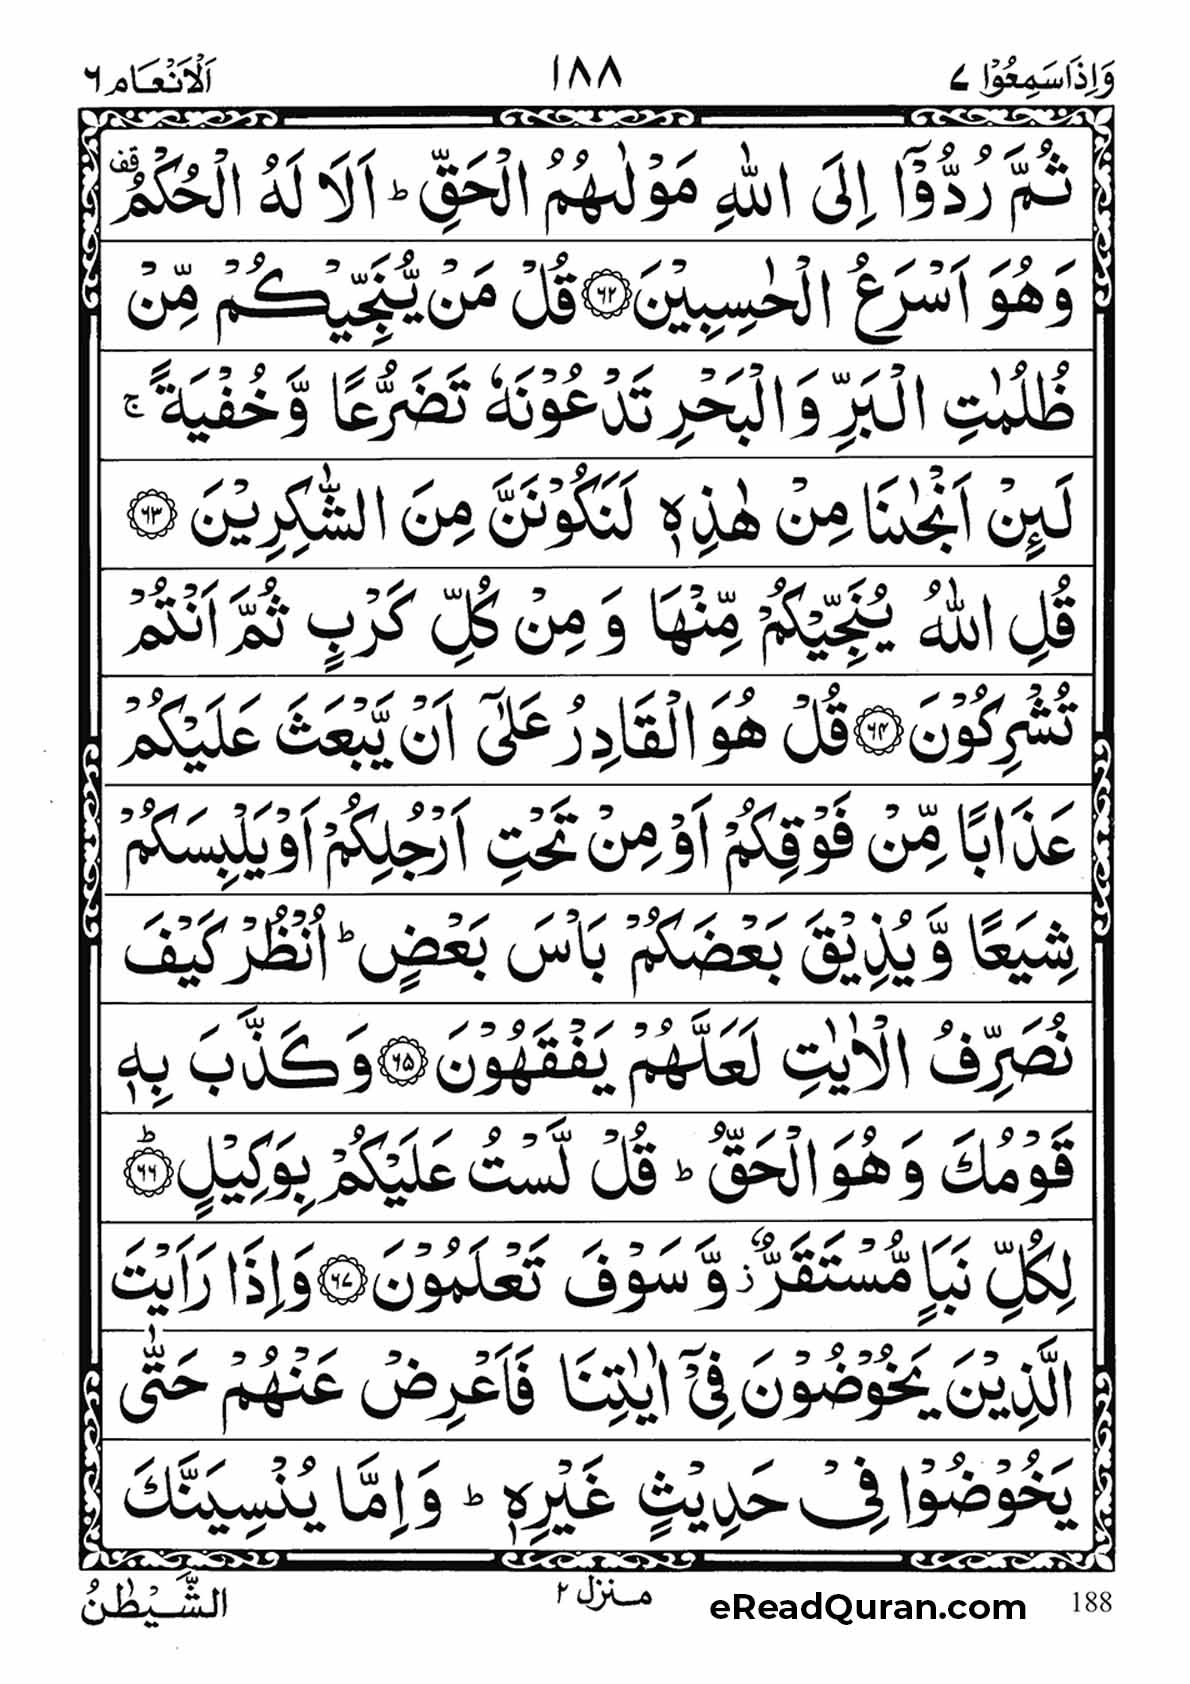 وَاِذَا سَمِعُوْا ۷ ۱۸۸ اَلْاَنْعَام ۶
ثُمَّ رُدُّوْۤا اِلَى اللّٰهِ مَوْلٰىهُمُ الْحَقِّ ؕ اَلَا لَهُ الْحُكْمُ ۫
وَهُوَ اَسْرَعُ الْحٰسِبِيْنَ ﴿۶۲﴾ قُلْ مَنْ يُّنَجِّيْكُمْ مِّنْ
ظُلُمٰتِ الْبَرِّ وَالْبَحْرِ تَدْعُوْنَهٗ تَضَرُّعًا وَّخُفْيَةً ۚ
لَىِٕنْ اَنْجٰىنَا مِنْ هٰذِهٖ لَنَكُوْنَنَّ مِنَ الشّٰكِرِيْنَ ﴿۶۳﴾
قُلِ اللّٰهُ يُنَجِّيْكُمْ مِّنْهَا وَمِنْ كُلِّ كَرْبٍ ثُمَّ اَنْتُمْ
تُشْرِكُوْنَ ﴿۶۴﴾ قُلْ هُوَ الْقَادِرُ عَلٰۤى اَنْ يَّبْعَثَ عَلَيْكُمْ
عَذَابًا مِّنْ فَوْقِكُمْ اَوْ مِنْ تَحْتِ اَرْجُلِكُمْ اَوْ يَلْبِسَكُمْ
شِيَعًا وَّيُذِيْقَ بَعْضَكُمْ بَاْسَ بَعْضٍ ؕ اُنْظُرْ كَيْفَ
نُصَرِّفُ الْاٰيٰتِ لَعَلَّهُمْ يَفْقَهُوْنَ ﴿۶۵﴾ وَكَذَّبَ بِهٖ
قَوْمُكَ وَهُوَ الْحَقُّ ؕ قُلْ لَّسْتُ عَلَيْكُمْ بِوَكِيْلٍ ﴿۶۶﴾ؕ
لِكُلِّ نَبَاٍ مُّسْتَقَرٌّ ؗ وَّسَوْفَ تَعْلَمُوْنَ ﴿۶۷﴾ وَاِذَا رَاَيْتَ
الَّذِيْنَ يَخُوْضُوْنَ فِيْۤ اٰيٰتِنَا فَاَعْرِضْ عَنْهُمْ حَتّٰى
يَخُوْضُوْا فِيْ حَدِيْثٍ غَيْرِهٖ ؕ وَاِمَّا يُنْسِيَنَّكَ
188 eReadQuran.com منزل ۲ الشَّيْطٰنُ